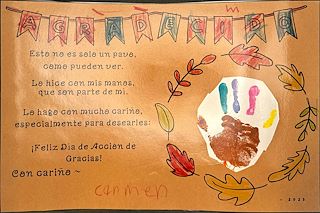 AGRADECIDO
Esto no es solo un pavo,
como pueden ver.
Lo hice con mis manos,
que son parte de mi.
Lo hago con mucho cariño,
especialmente para desearles:
¡Feliz Día de Acción de
Gracias!
Con cariño ~
carmen
- 2025